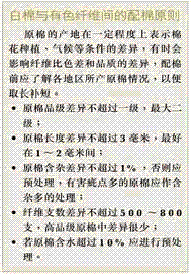 白棉与有色纤维间的配棉原则
原棉的产地在一定程度上表示棉
花种植、气候等条件的差异，有时会
影响纤维比色差和品质的差异，配棉
前应了解各地区所产原棉情况，以便
取长补短。
• 原棉品级差异不超过一级，最大二
级；
• 原棉长度差异不超过3毫米，最好
在1～2毫米间；
• 原棉含杂差异不超过1%，否则应
预处理，有害疵点多的原棉应作含
杂多的处理；
• 纤维支数差异不超过500～800
支，高品级原棉中差异很少；
• 若原棉含水超过10%应进行预处
理。